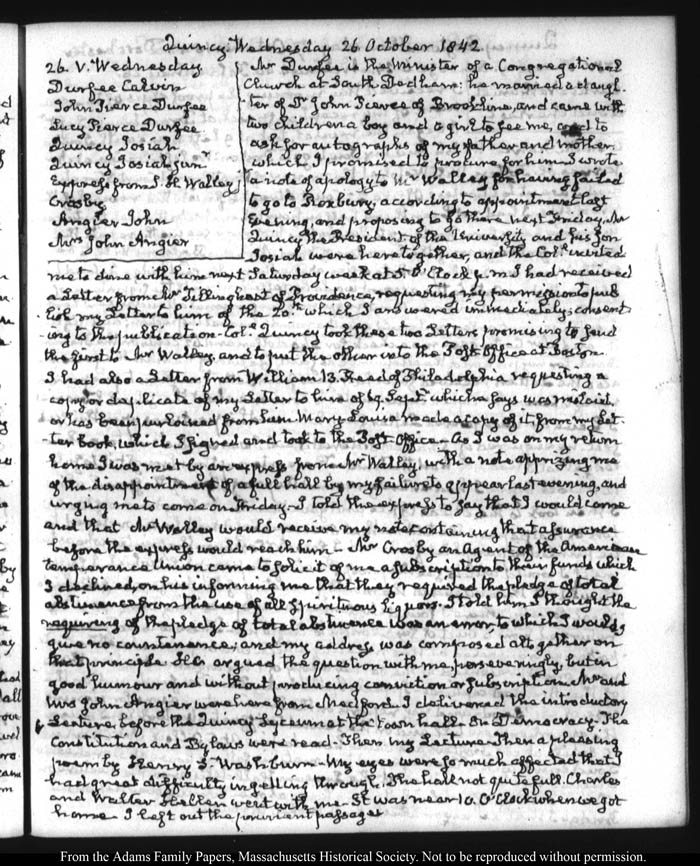 Quincy. Wednesday 26 October 1842.
26. V. Wednesday
Durfee Calvin
John Pierce Durfee
Lucy Pierce Durfee
Quincy Josiah
Quincy Josiah junr
Express from S. H. Walley
Crosby
Angier John
Mrs John Angier
Mr Durfee is the Minister of a Congregational
Church at South Dedham: he married a daugh-
ter of Dr John Pierce of Brookline, and came with
two children a boy and a girl to see me, and to
ask for autographs of my father and mother,
which I promised to procure for him. I wrote
a note of apology to Mr Walley for having failed
to go to Roxbury, according to appointment last
Evening, and proposing to go there next Friday. Mr
Quincy the President of the University and his Son
Josiah were here together, and the Col. invited
me to dine with him next Saturday week at 5 O'Clock p.m. I had received
a Letter from Mr Tillinghast of Providence, requesting my permission to pub-
lish my Letter to him of the 20th which I answered immediately; consent-
ing to the publication. Col. Quincy took these two Letters promising to send
the first to Mr Walley, and to put the other into the Post-Office at Boston.
I had also a Letter from William B. Reed of Philadelphia requesting a
copy or duplicate of my Letter to him of 19. Septr which he says was mislaid,
or has been purloined from him. Mary Louisa made a copy of it from my Let-
ter book, which I signed and took to the Post-Office. As I was on my return
home I was met by an express from Mr Walley, with a note apprizing me
of the disappointment of a full hall by my failure to appear last evening, and
urging me to come on Friday. I told the express to say that I would come
and that Mr Walley would receive my note containing that assurance
before the express would reach him. Mr Crosby an Agent of the American
temperance Union came to solicit of me a subscription to their funds which
I declined, on his informing me that they required the pledge of total
abstinence from the use of all Spirituous liquors. I told him I thought the
requiring of the pledge of total abstinence was an error, to which I would
give no countenance; and my address was composed altogether on
that principle. He argued the question with me perseveringly, but in
good humour and without producing conviction or subscription. Mr and
Mrs John Angier were here from Medford. I delivered the introductory
Lecture, before the Quincy Lyceum at the town hall. On Democracy. The
Constitution and Bylaws were read. Then my Lecture. Then a pleasing
poem by Henry S. Washburn. My eyes were so much affected that I
had great difficulty in getting through. The hall not quite full. Charles
and Walter Hellen went with me. It was near 10. O'Clock when we got
home I left out the prurient passages
From the Adams Family Papers, Massachusetts Historical Society. Not to be reproduced without permission.